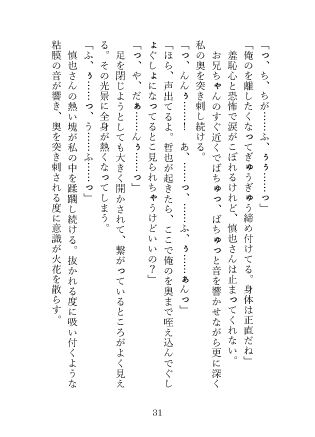 「っ、ち、ちが……ふ、ぅぅ……っ」
「俺のを離したくなってぎゅうぎゅう締め付けてる。身体は正直だね」
羞恥心と恐怖で涙がこぼれるけれど、慎也さんは止まってくれない。
お兄ちゃんのすぐ近くでぱちゅっ、ぱちゅっと音を響かせながら更に深く
私の奥を突き刺し続ける。
「っ、んんぅ……！　あ、……っ、……ふ、ぅ……ぁんっ」
「ほら、声出てるよ。哲也が起きたら、ここで俺のを奥まで咥え込んでぐし
ょぐしょになってるとこ見られちゃうけどいいの？」
「っ、や、だぁ……ん、ぅ……っ」
足を閉じようとしても大きく開かされて、繋がっているところがよく見え
る。その光景に全身が熱くなってしまう。
「ふ、ぅ……っ、う……ふ……っ」
慎也さんの熱い塊が私の中を蹂躙し続ける。抜かれる度に吸い付くような
粘膜の音が響き、奥を突き刺される度に意識が火花を散らす。
31